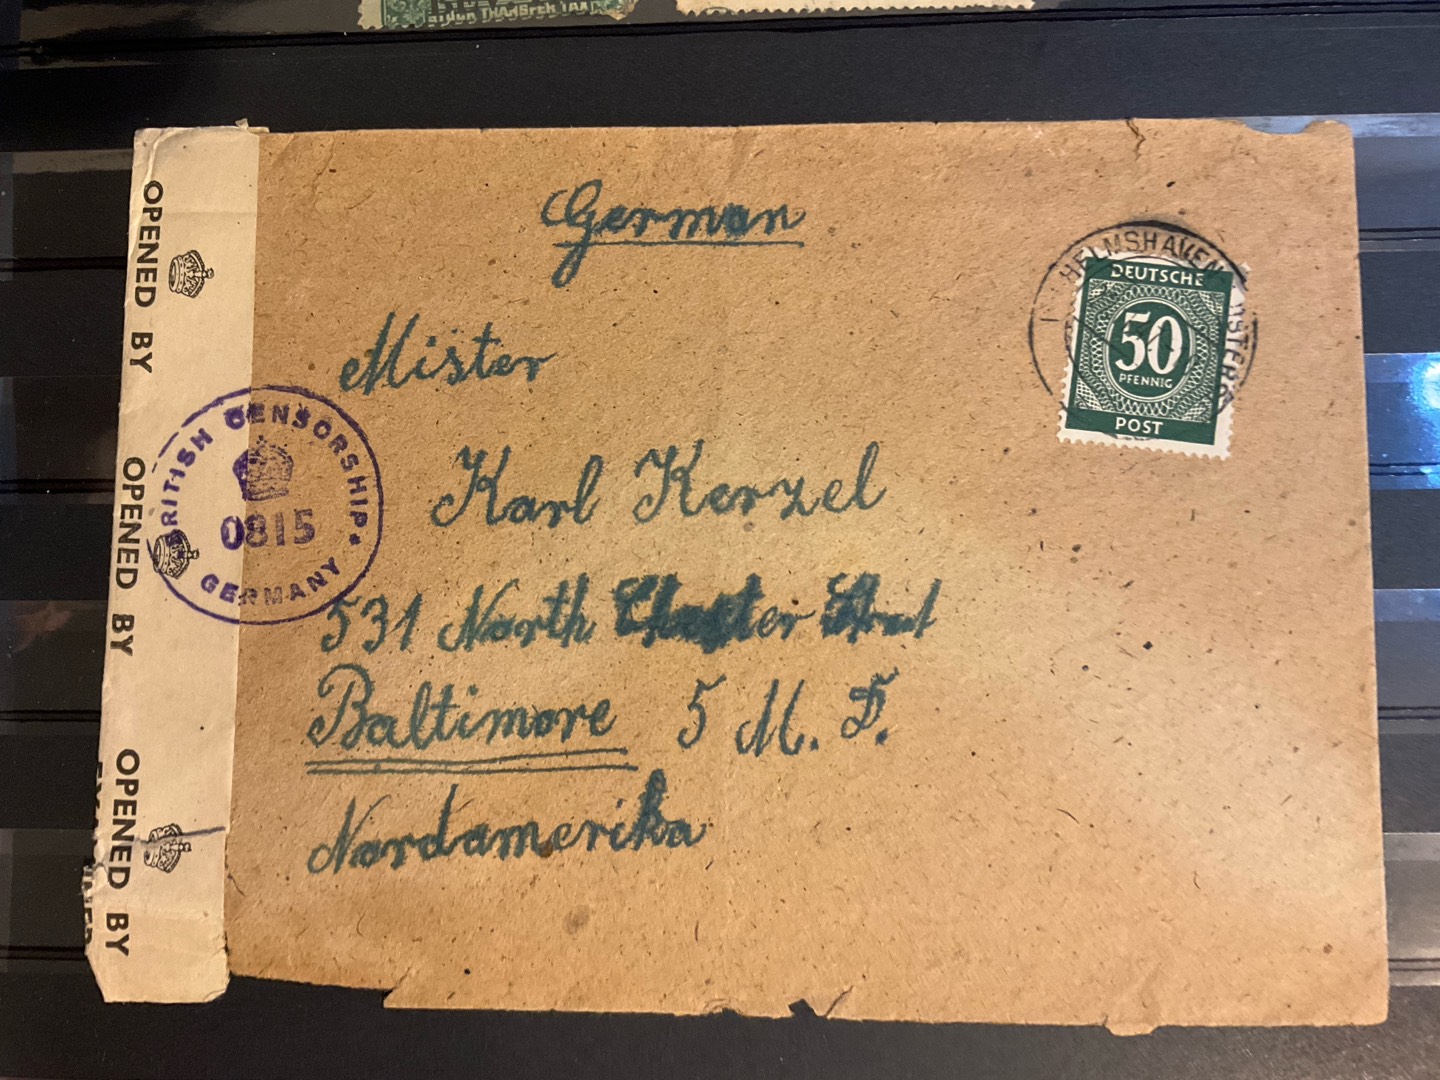 STOCK TRANSFER TAX
German
HELMSHAVEN
DEUTSCHE
50
PFENNIG
POST
Mister
Karl Kerzel
531 North Chester Street
Baltimore 5 M. D.
Nordamerika
OPENED BY
OPENED BY
OPENED BY
BRITISH CENSORSHIP
0815
GERMANY